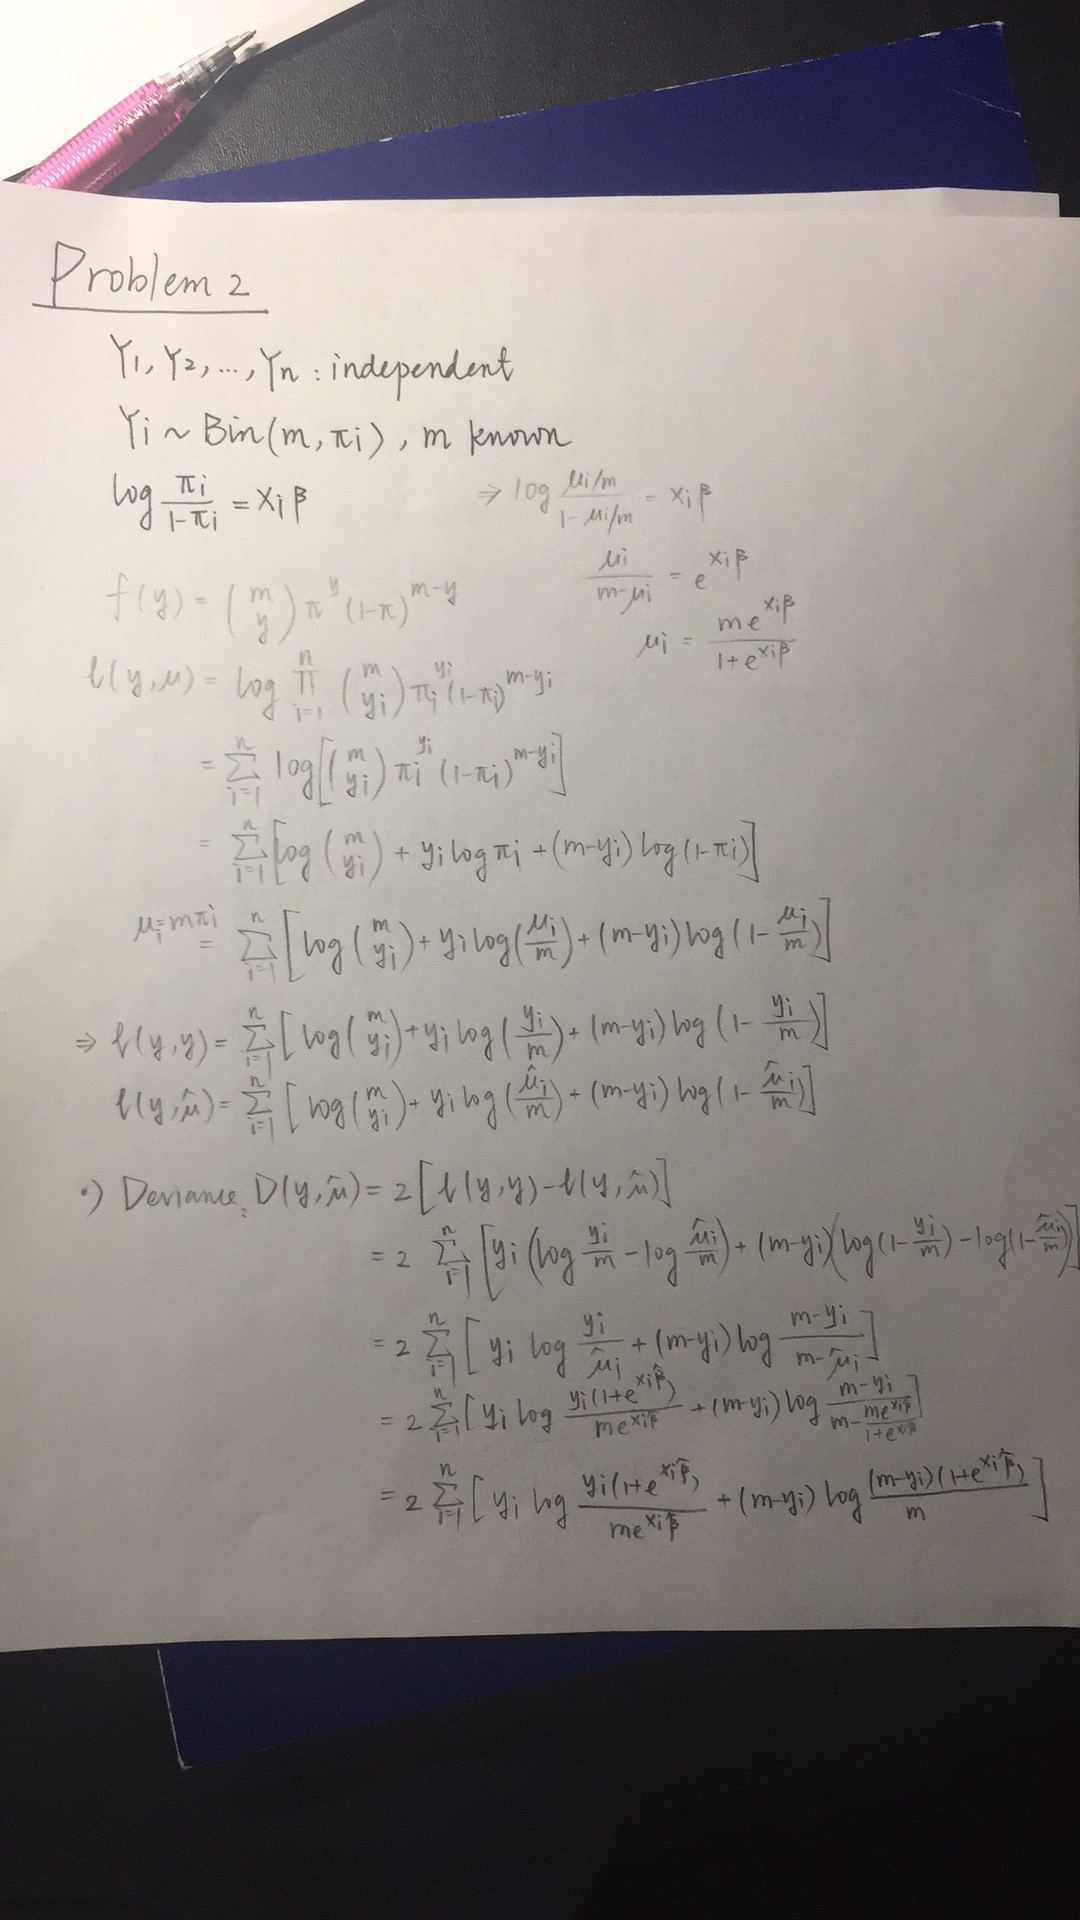 Problem 2
Y₁, Y₂, ..., Yn : independent
Yi ~ Bin(m, πi), m known
log πi/(1-πi) = xiβ ⇒ log (μi/m)/(1-μi/m) = xiβ
μi/(m-μi) = e^(xiβ)
f(y) = (m y) π^y (1-π)^(m-y)
μi = me^(xiβ)/(1+e^(xiβ))
ℓ(y,μ) = log ∏_{i=1}^n (m yi) πi^yi (1-πi)^(m-yi)
= Σ_{i=1}^n log[(m yi) πi^yi (1-πi)^(m-yi)]
= Σ_{i=1}^n [log (m yi) + yi log πi + (m-yi) log (1-πi)]
μi=mπi = Σ_{i=1}^n [log (m yi) + yi log(μi/m) + (m-yi) log (1- μi/m)]
⇒ ℓ(y,y) = Σ_{i=1}^n [log (m yi) + yi log (yi/m) + (m-yi) log (1- yi/m)]
ℓ(y,μ̂) = Σ_{i=1}^n [log (m yi) + yi log (μ̂i/m) + (m-yi) log (1- μ̂i/m)]
•) Deviance: D(y,μ̂) = 2[ℓ(y,y)-ℓ(y,μ̂)]
= 2 Σ_{i=1}^n [yi (log yi/m - log μ̂i/m) + (m-yi)(log(1- yi/m) - log(1- μ̂i/m))]
= 2 Σ_{i=1}^n [yi log yi/μ̂i + (m-yi) log (m-yi)/(m-μ̂i)]
= 2 Σ_{i=1}^n [yi log yi(1+e^(xiβ̂))/(me^(xiβ̂)) + (m-yi) log (m-yi)/(m- me^(xiβ̂)/(1+e^(xiβ̂)))]
= 2 Σ_{i=1}^n [yi log yi(1+e^(xiβ̂))/(me^(xiβ̂)) + (m-yi) log (m-yi)(1+e^(xiβ̂))/m]